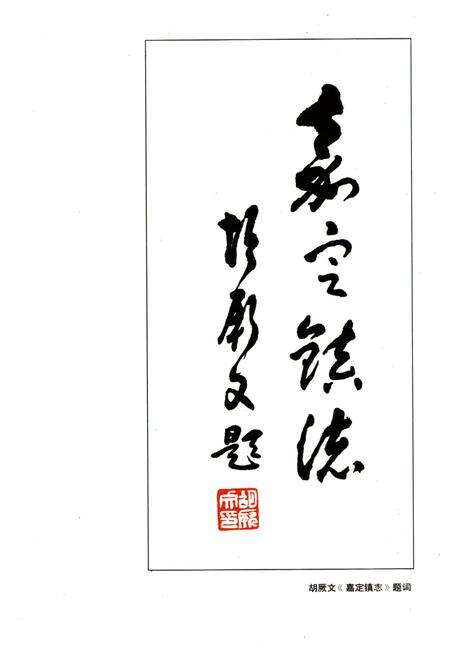 嘉定鎮志
胡厥文題
胡厥文印
胡厥文《嘉定镇志》题词